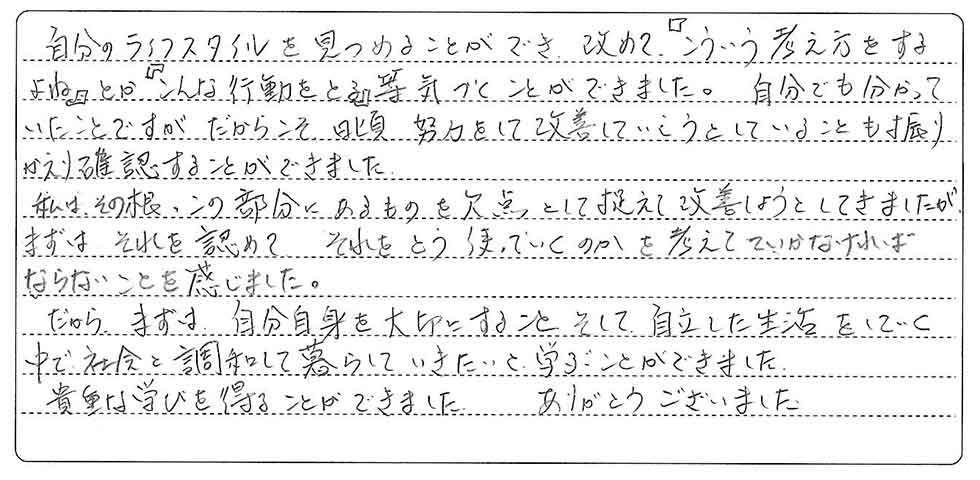 自分のライフスタイルを見つめることができ、改めて、『こういう考え方をする
よね』とか『こんな行動をとる』等気づくことができました。 自分でも分かって
いたことですが だからこそ 日頃 努力をして改善していこうとしていることも振り
かえり確認することができました.
私は、その根っこの部分にあるものを欠点として捉えて改善しようとしてきましたが、
まずは それを認めて それをどう使っていくのかを考えてていかなければ
ならないことを感じました。
だから、まずは 自分自身を大切にすること、そして、自立した生活をしていく
中で社会と調和して暮らしていきたいと学ぶことができました.
貴重な学びを得ることができました. ありがとうございました